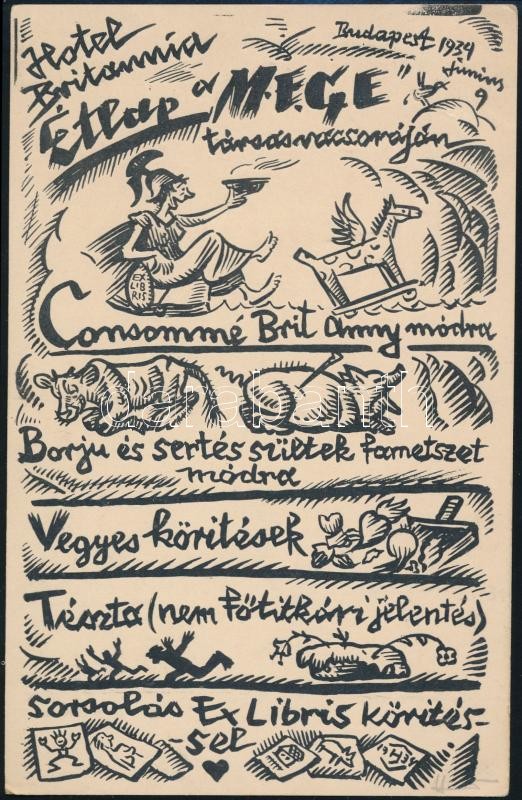 Hotel
Britannia
Budapest 1934
június
9
Étlap a „M.E.G.E"
társasvacsoráján
EX
LIB
RIS
Consommé Brit Anny módra
darabanth
Borju és sertés sültek fametszet
módra
Vegyes köritések
Tészta (nem főtitkári jelentés)
Sorsolás Ex Libris körités-
-sel